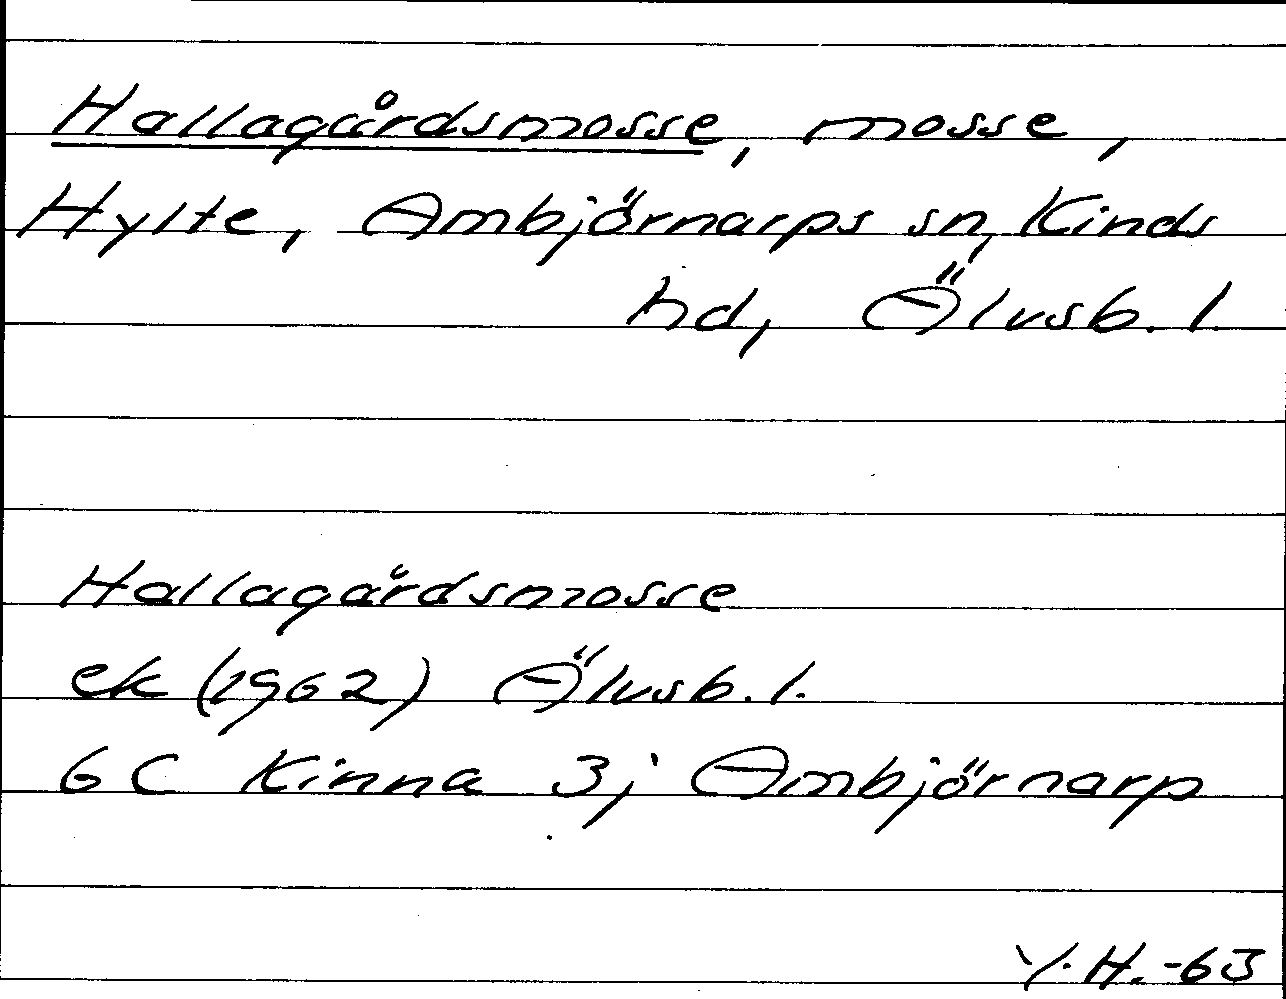 Hallagårdsmosse, mosse,
Hylte, Ambjörnarps sn, Kinds
hd, Älvsb. l.
Hallagårdsmosse
ek (1962) Älvsb. l.
6 C Kinna 3j Ambjörnarp
Y. H. -63